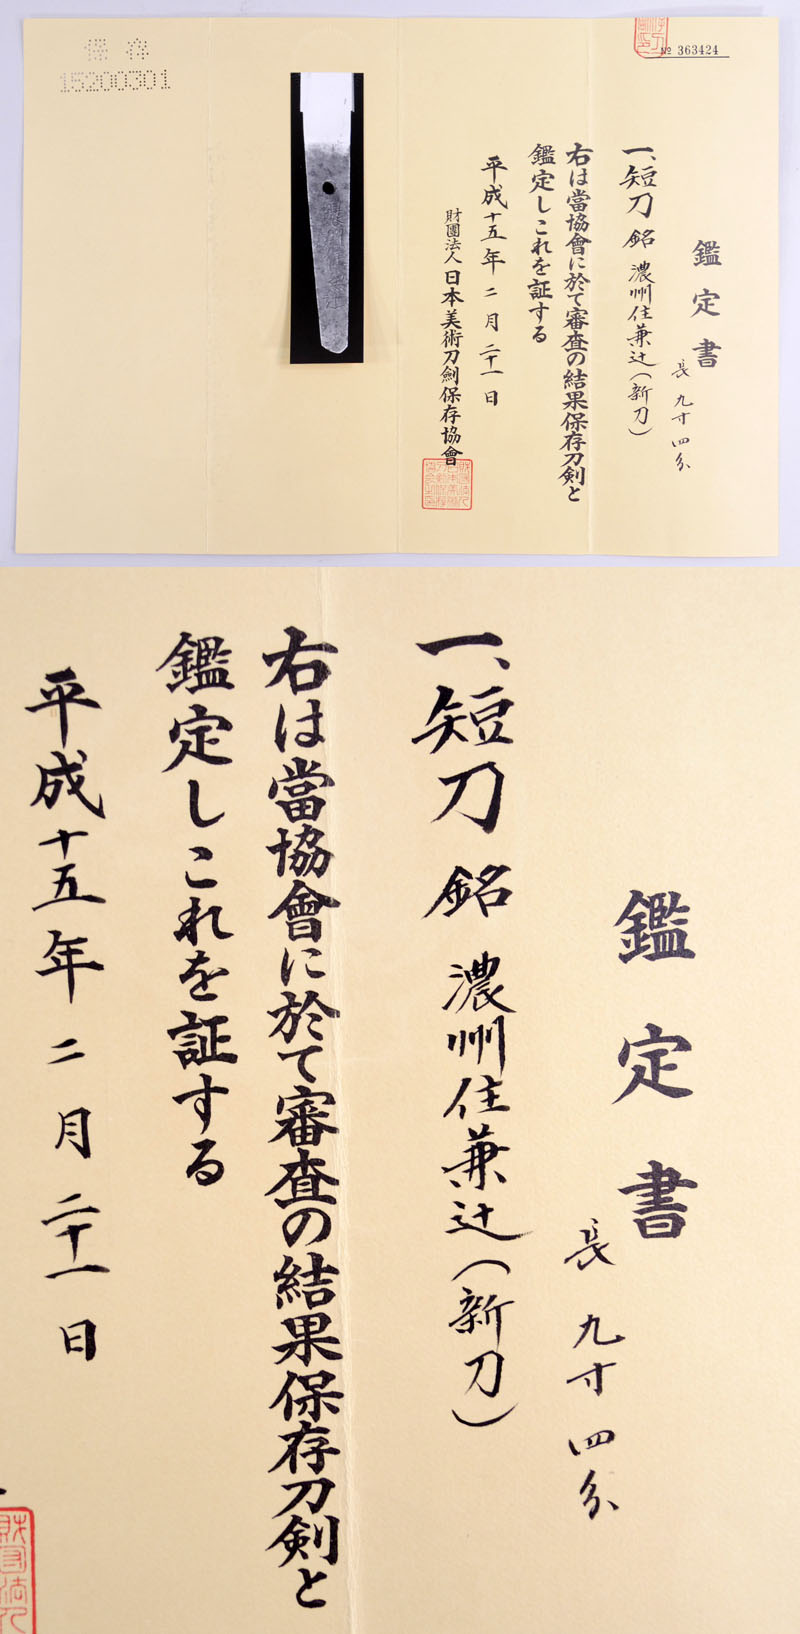 保存
15200301
№ 363424
鑑定書
長 九寸四分
一、短刀 銘 濃州住兼辻(新刀)
右は當協會に於て審査の結果保存刀剣と
鑑定しこれを証する
平成十五年 二月 二十一日
財團法人 日本美術刀劍保存協會
鑑定書
長 九寸四分
一、短刀 銘 濃州住兼辻(新刀)
右は當協會に於て審査の結果保存刀剣と
鑑定しこれを証する
平成十五年 二月 二十一日
財団法人